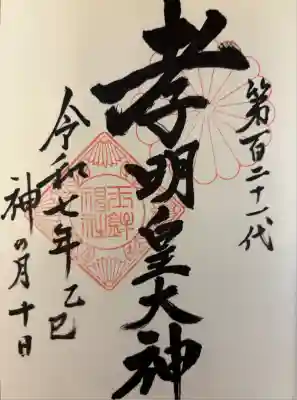 第百二十一代
孝明皇大神
令和七年乙巳
神の月十日